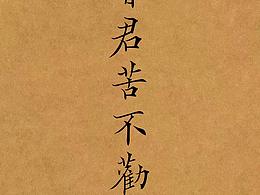 君苦不勸